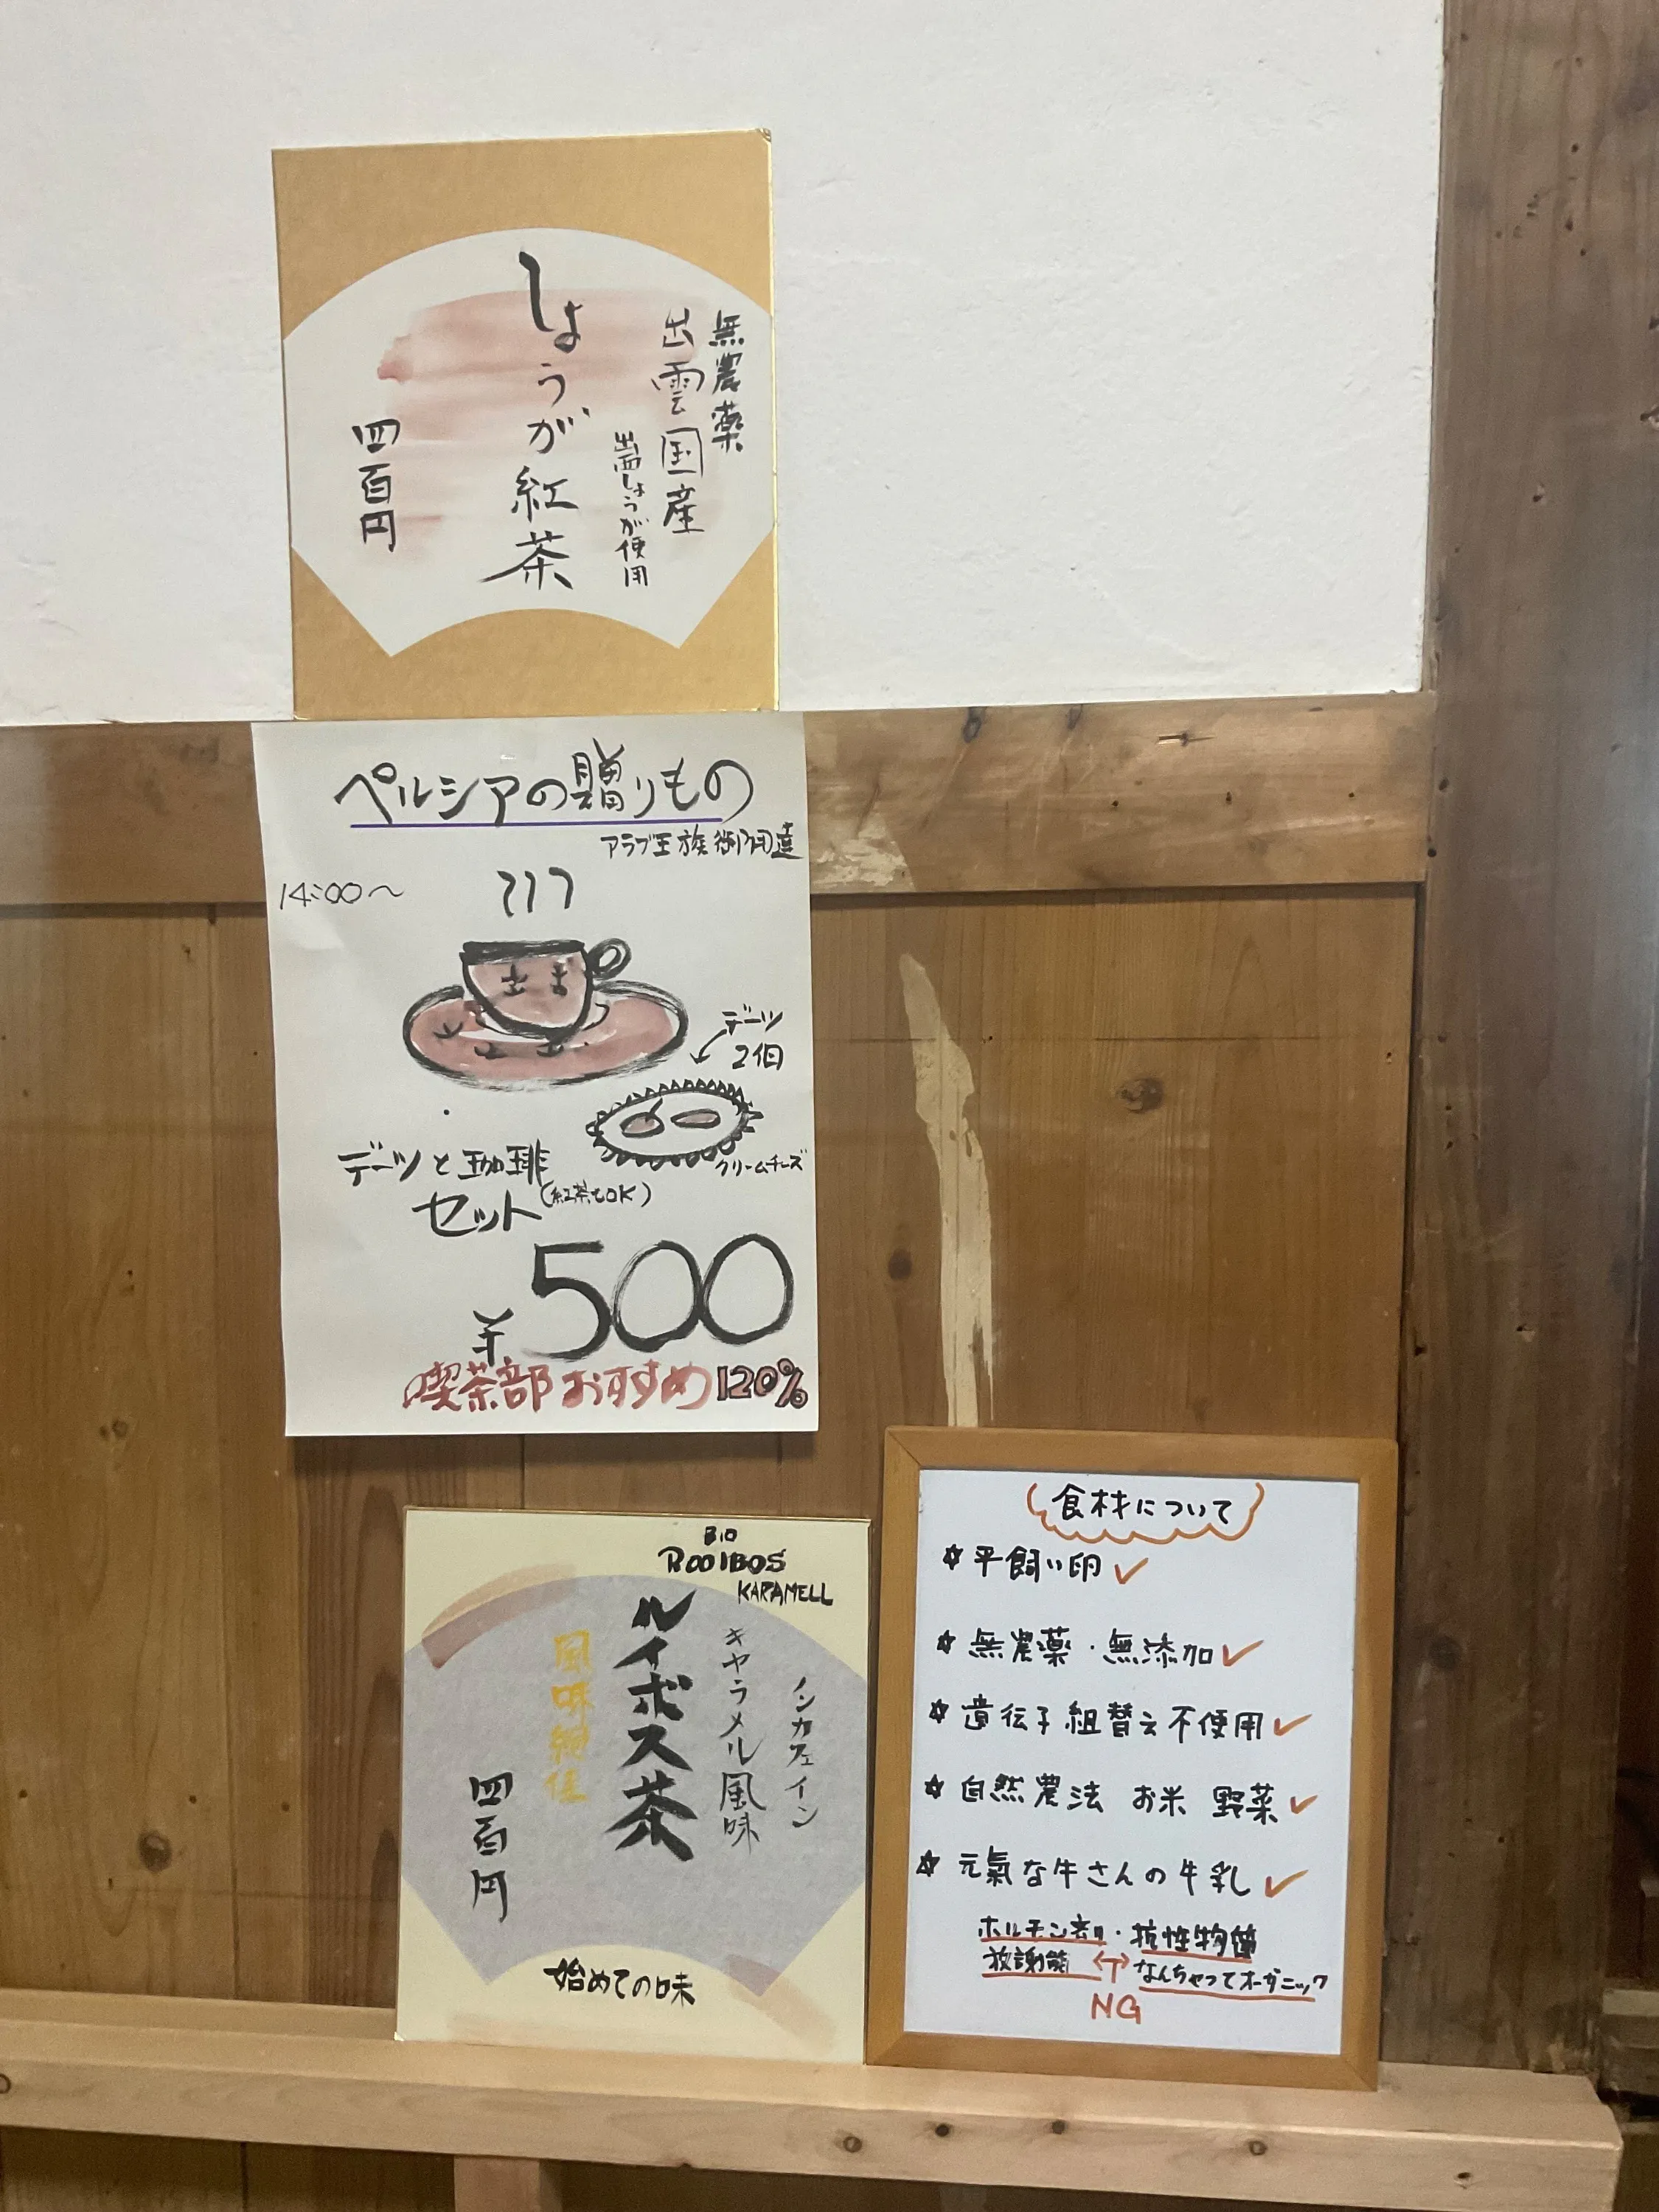 無農薬
出雲国産
出西しょうが使用
しょうが紅茶
四百円
ペルシアの贈りもの
アラブ王族御用達
14:00〜
デーツ
2個
クリームチーズ
デーツと珈琲
セット(紅茶もOK)
¥500
喫茶部おすすめ120%
BIO
ROOIBOS
KARAMELL
ノンカフェイン
キャラメル風味
ルイボス茶
風味絶佳
四百円
始めての味
食材について
☆平飼い卵✓
☆無農薬・無添加✓
☆遺伝子組替え不使用✓
☆自然農法 お米 野菜✓
☆元氣な牛さんの牛乳✓
ホルモン剤・抗性物質
放謝能 ←→ なんちゃってオーガニック
NG